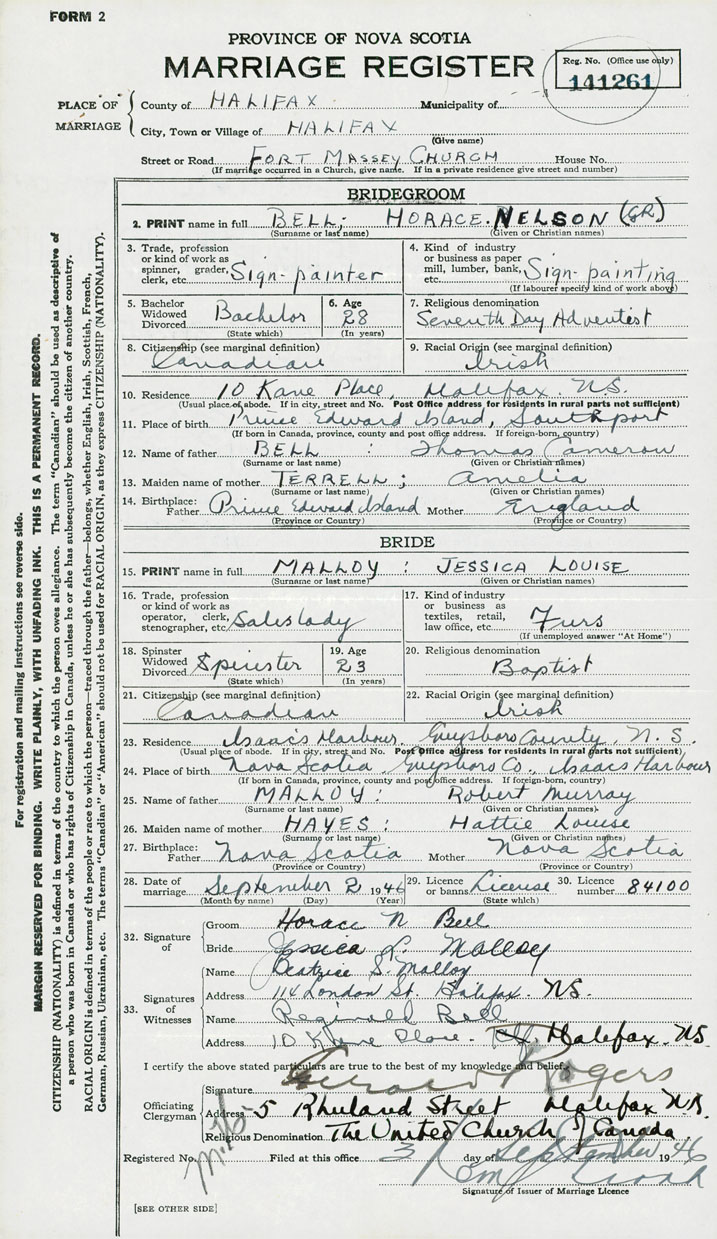 FORM 2
PROVINCE OF NOVA SCOTIA
MARRIAGE REGISTER
Reg. No. (Office use only)
141261
PLACE OF MARRIAGE
County of HALIFAX Municipality of
City, Town or Village of HALIFAX
(Give name)
Street or Road FORT MASSEY CHURCH House No.
(If marriage occurred in a Church, give name. If in a private residence give street and number)
BRIDEGROOM
2. PRINT name in full BELL; HORACE. NELSON (GR)
(Surname or last name) (Given or Christian names)
3. Trade, profession or kind of work as spinner, grader, clerk, etc. Sign-painter
4. Kind of industry or business as paper mill, lumber, bank, etc. Sign-painting
(If labourer specify kind of work above)
5. Bachelor Widowed Divorced Bachelor
(State which)
6. Age 28
(In years)
7. Religious denomination
Seventh Day Adventist
8. Citizenship (see marginal definition)
Canadian
9. Racial Origin (see marginal definition)
Irish
10. Residence 10 Kane Place, Halifax N.S.
(Usual place of abode. If in city, street and No. Post Office address for residents in rural parts not sufficient)
11. Place of birth Prince Edward Island, Southport
(If born in Canada, province, county and post office address. If foreign-born, country)
12. Name of father BELL : Thomas Cameron
(Surname or last name) (Given or Christian names)
13. Maiden name of mother TERRELL; Amelia
(Surname or last name) (Given or Christian names)
14. Birthplace: Father Prince Edward Island Mother England
(Province or Country) (Province or Country)
BRIDE
15. PRINT name in full MALLOY : JESSICA LOUISE
(Surname or last name) (Given or Christian names)
16. Trade, profession or kind of work as operator, clerk, stenographer, etc. Saleslady
17. Kind of industry or business as textiles, retail, law office, etc. Furs
(If unemployed answer "At Home")
18. Spinster Widowed Divorced Spinster
(State which)
19. Age 23
(In years)
20. Religious denomination
Baptist
21. Citizenship (see marginal definition)
Canadian
22. Racial Origin (see marginal definition)
Irish
23. Residence Isaac's Harbour, Guysboro County, N.S.
(Usual place of abode. If in city, street and No. Post Office address for residents in rural parts not sufficient)
24. Place of birth Nova Scotia Guysboro Co., Isaacs Harbour
(If born in Canada, province, county and post office address. If foreign-born, country)
25. Name of father MALLOY : Robert Murray
(Surname or last name) (Given or Christian names).
26. Maiden name of mother HAYES : Hattie Louise
(Surname or last name) (Given or Christian names)
27. Birthplace: Father Nova Scotia Mother Nova Scotia
(Province or Country) (Province or Country)
28. Date of marriage September 2 1946
(Month by name) (Day) (Year)
29. Licence or banns License
(State which)
30. Licence number 84100
32. Signature of
Groom Horace N Bell
Bride Jessica L. Malloy
33. Signatures of Witnesses
Name Beatrice S. Malloy
Address 114 London St. Halifax. NS.
Name Reginald Bell
Address 10 Kane Place. Halifax. NS.
I certify the above stated particulars are true to the best of my knowledge and belief.
Officiating Clergyman
Signature Rogers
Address 5 Rhuland Street Halifax N.S.
Religious Denomination The United Church of Canada
Registered No. Filed at this office 3 day of September 1946
Signature of Issuer of Marriage Licence
[SEE OTHER SIDE]
For registration and mailing instructions see reverse side.
MARGIN RESERVED FOR BINDING. WRITE PLAINLY, WITH UNFADING INK. THIS IS A PERMANENT RECORD.
CITIZENSHIP (NATIONALITY) is defined in terms of the country to which the person owes allegiance. The term "Canadian" should be used as descriptive of
a person who was born in Canada or who has rights of Citizenship in Canada, unless he or she has subsequently become the citizen of another country.
RACIAL ORIGIN is defined in terms of the people or race to which the person—traced through the father—belongs, whether English, Irish, Scottish, French,
German, Russian, Ukrainian, etc. The terms "Canadian" or "American" should not be used for RACIAL ORIGIN, as they express CITIZENSHIP (NATIONALITY).